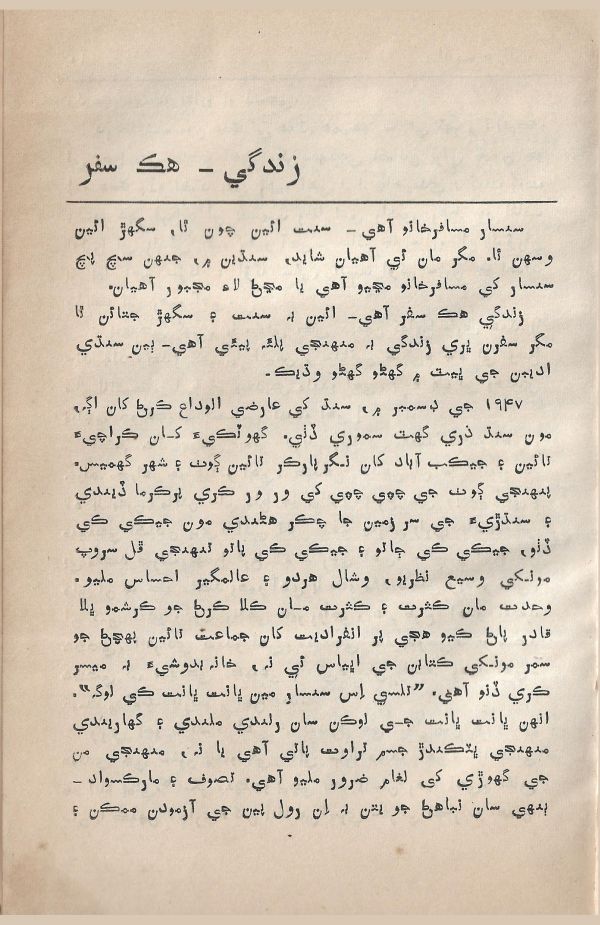 زندگي – هڪ سفر
سنسار مسافرخانو آهي – سنت ائين چون ٿا، سگهڙ ائين
وسهن ٿا. مگر مان ئي آهيان شايد، سنڌين ۾، جنهن سچ پچ
سنسار کي مسافرخانو مڃيو آهي يا مڃڻ لاءِ مجبور آهيان.
زندگي هڪ سفر آهي – ائين به سنت ۽ سگهڙ جتائن ٿا
مگر سفرن ڀري زندگي به منهنجي پلئه پيئي آهي – ٻين سنڌي
اديبن جي ڀيٽ ۾ گهڻو گهڻو وڌيڪ.
۱۹۴۷ جي ڊسمبر ۾، سنڌ کي عارضي الوداع ڪرڻ کان اڳ،
مون سنڌ ذري گهٽ سموري ڏٺي. گهوٽڪيءَ کان ڪراچيءَ
تائين ۽ جيڪب آباد کان ننگرپارڪر تائين ڳوٺ ۽ شهر گهميس.
پنهنجي ڳوٺ جي چپي چپي کي ور ور ڪري پرڪرما ڏيندي
۽ سنڌڙيءَ جي سرزمين جا چڪر هڻندي مون جيڪي ڪي
ڏٺو، جيڪي ڪي ڄاتو ۽ جيڪي ڪي پاتو تنهنجي ڦل سروپ
مونکي وسيع نظريو، وشال هردو ۽ عالمگير احساس مليو.
وحدت مان ڪثرت ۽ ڪثرت مان ڪلا ڪرڻ جو ڪرشمو ڀلا
قادر پاڻ ڪيو هجي پر انفراديت کان جماعت تائين پهچڻ جو
سمر مونکي ڪتابن جي اڀياس ئي نه، خانه بدوشيءَ به ميسر
ڪري ڏنو آهي. ”تلسي اِس سنسار مين ڀانت ڀانت کي لوگ“.
انهن ڀانت ڀانت جي لوڪن سان رلندي ملندي ۽ گهاريندي
منهنجي ڀٽڪندڙ جسم تراوت پاتي آهي يا نه، منهنجي من
جي گهوڙي کي لغام ضرور مليو آهي. تصوف ۽ مارڪسواد –
ٻنهي سان نباهڻ جو يتن به اِن رول پڻي جي آزمودن ممڪن ۽